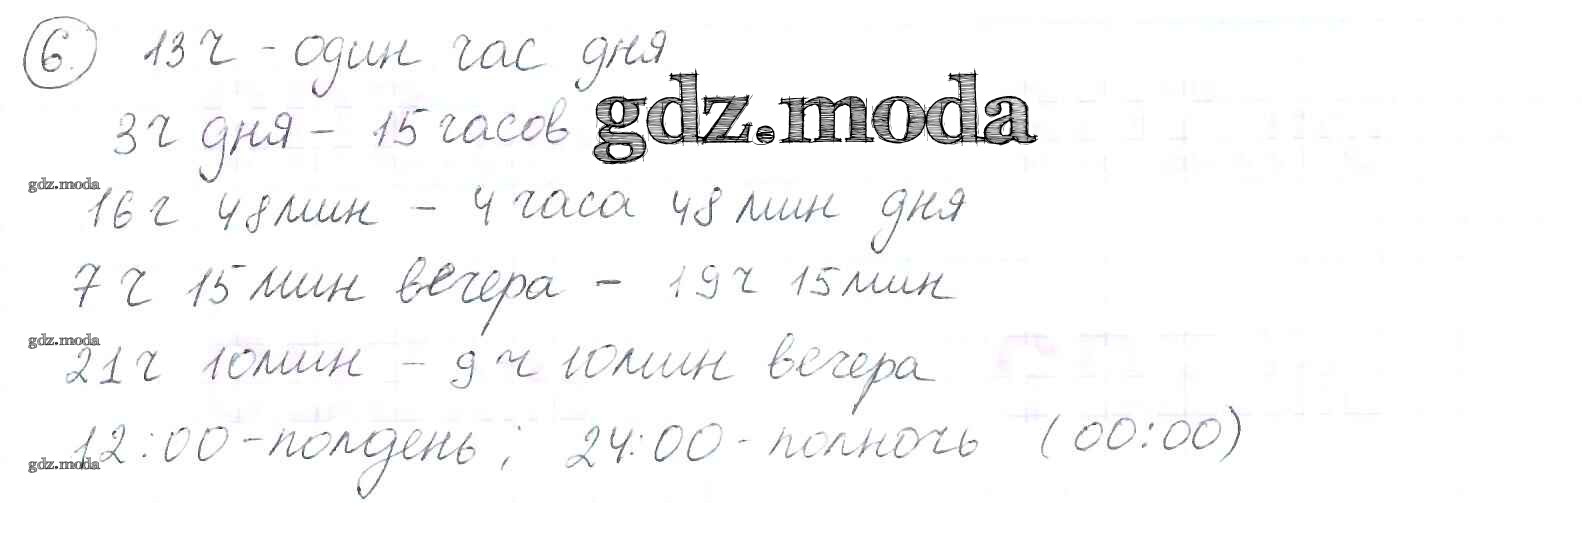 6. 13 ч - один час дня
3 ч дня - 15 часов gdz.moda
gdz.moda
16 ч 48 мин - 4 часа 48 мин дня
7 ч 15 мин вечера - 19 ч 15 мин
gdz.moda
21 ч 10 мин - 9 ч 10 мин вечера
12:00 - полдень; 24:00 - полночь (00:00)
gdz.moda